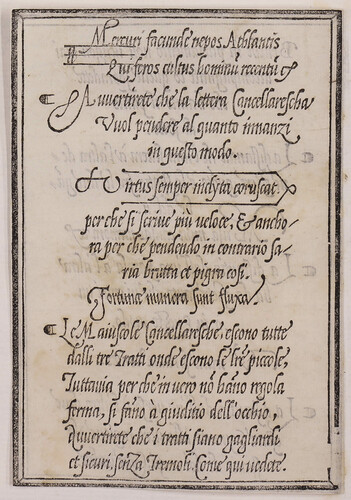 Mercuri facunde nepos Athlantis
Qui feros cultus hominū recentū &
Avvertirete che la lettera Cancellarescha
Vuol pendere al quanto innanzi
in questo modo.
Virtus semper inclyta coruscat.
perche si scrive più veloce, & ancho-
ra per che pendendo in contrario sa-
ria brutta et pigra così.
Fortunæ munera sunt fluxa.
Le Maiuscole Cancellaresche, escono tutte
dalli tre Tratti onde escono le lr̄e piccole,
Tuttavia per che in vero nō hāno regola
ferma, si fāno à giuditio dell'occhio,
Avvertirete che i tratti siano gagliardi
et sicuri. senza Tremoli. Come qui vedete.